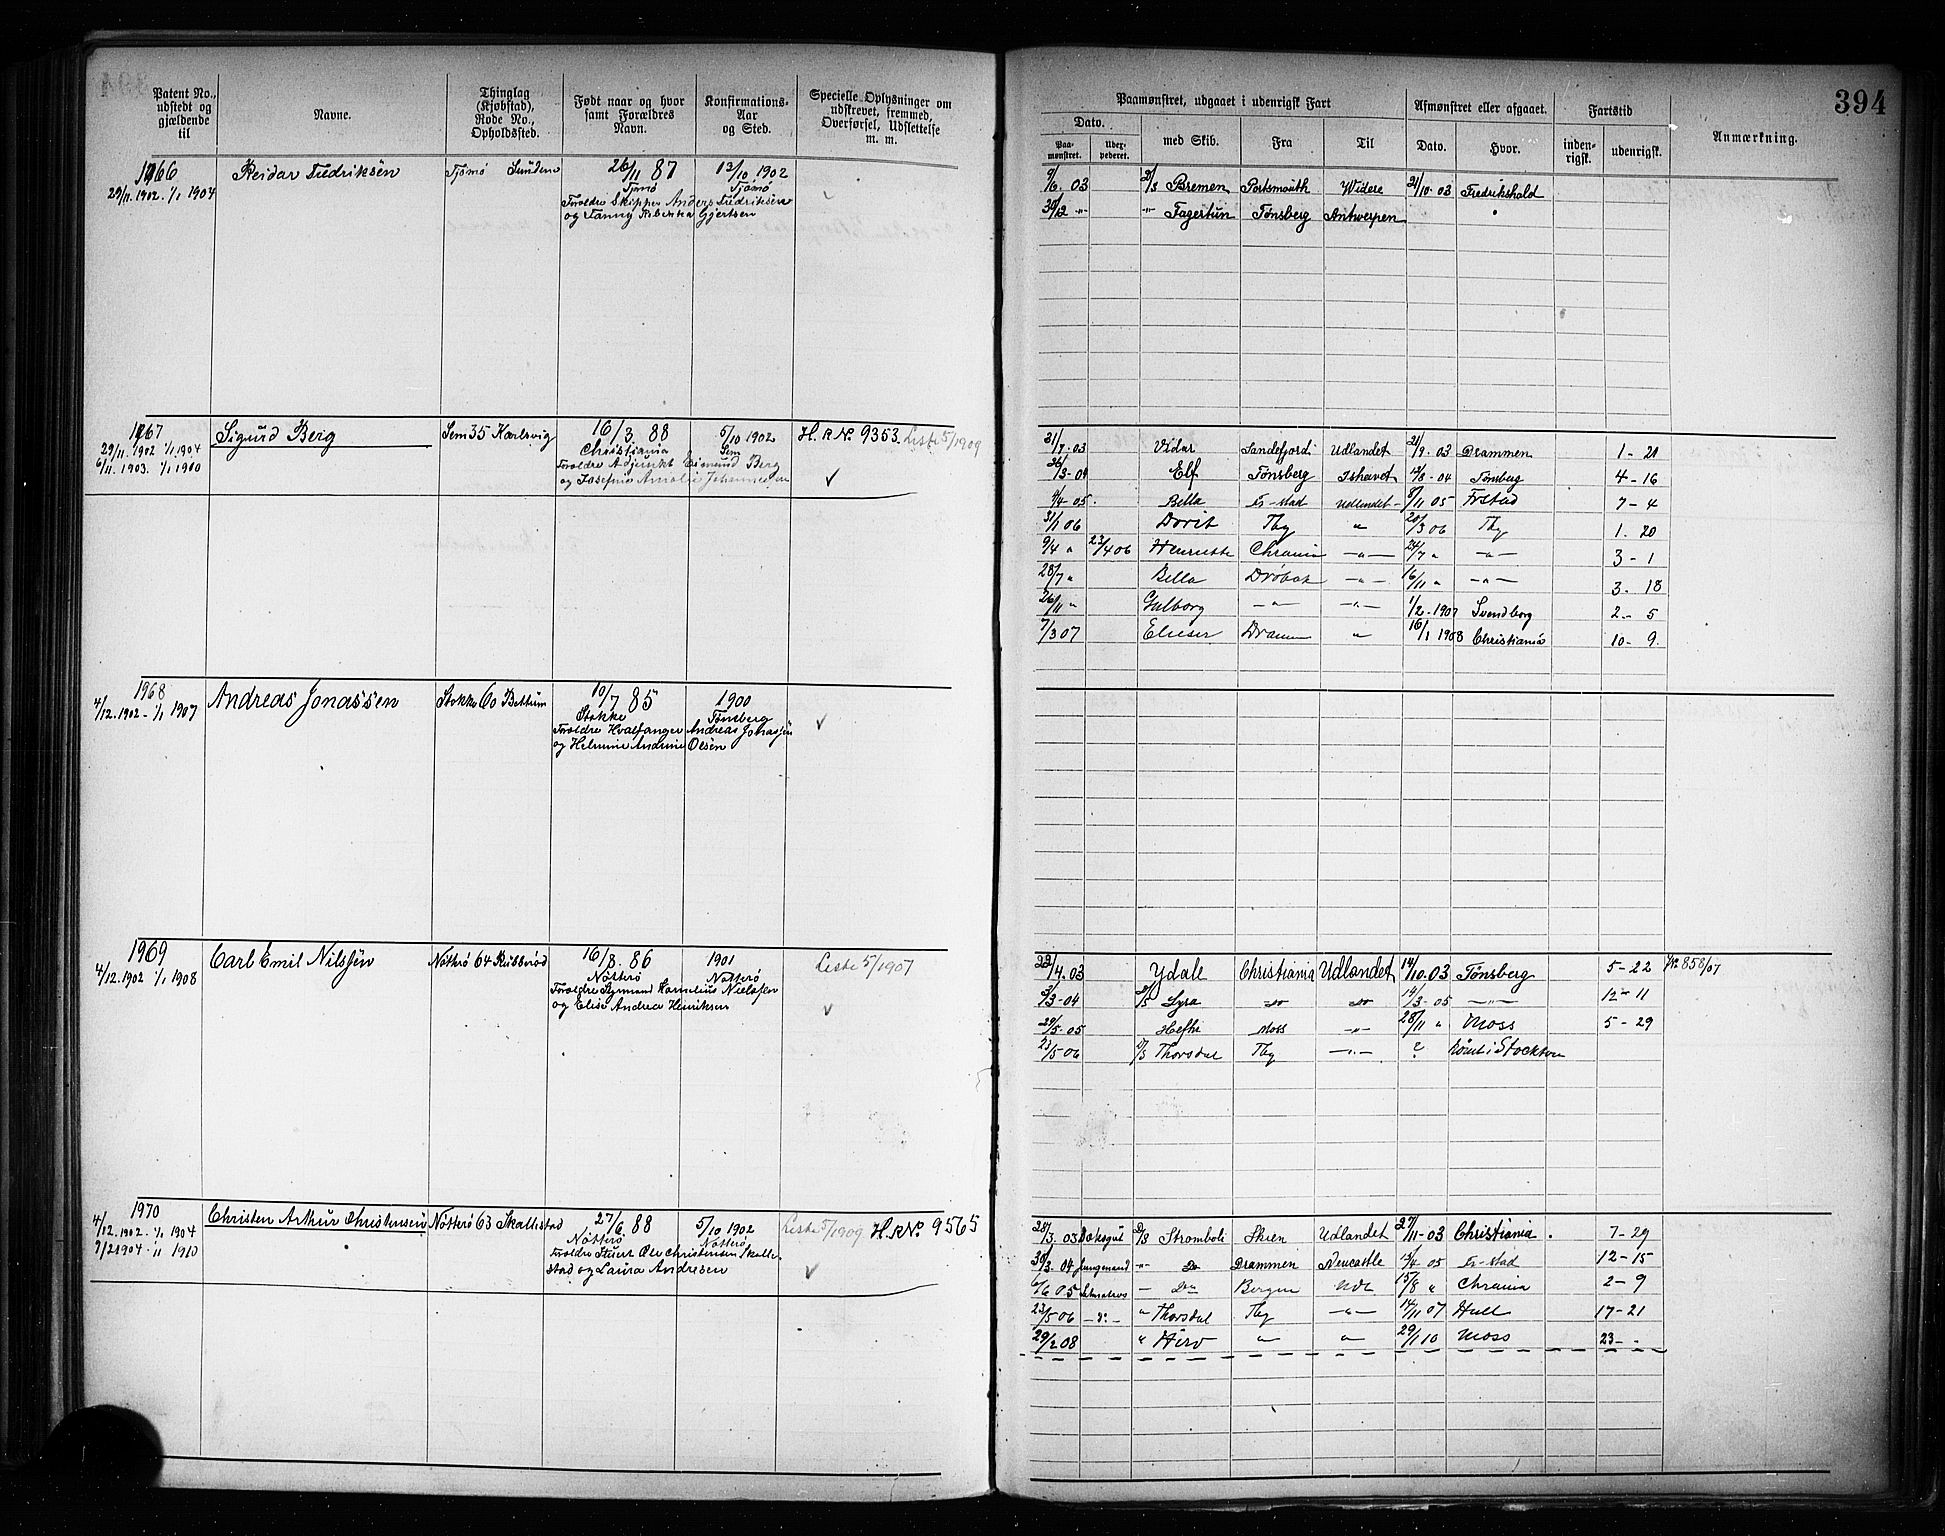 394
Patent No., udstedt og gjældende til
Navne.
Thinglag (Kjøbstad), Rode No., Opholdssted.
Født naar og hvor samt Forældres Navn.
Konfirmations-Aar og Sted.
Specielle Oplysninger om udskrevet, fremmed, Overførsel, Udslettelse m. m.
Paamønstret, udgaaet i udenrigsk Fart
Afmønstret eller afgaaet.
Fartstid
Anmærkning.
Dato.
Paa-mønstret.
med Skib.
Fra
Til
Dato.
Hvor.
inden-rigsk.
udenrigsk.
1966 Reidar Fredriksen Tjømø Sunden 26/11 87 13/10 1902
29/11.1902. 1/1 1904 Tjømø Tjømø
Foreldre Skipper Anders Fredriksen
og Fanny Gjertsen
9/6. 03 Bremen Portsmouth Widere 21/10-03 Fredrikshald
30/12 -"- -"- Fagertun Tønsberg Antwerpen
1967 Sigurd Berg Sem 35 Karlsvig 16/3. 88 5/10 1902 H.RNo. 9353. Liste 5/1909
29/11.1902 1/1 1904 Christiania Sem
6/11.1903. 1/1 1910 Foreldre Adjunkt Berg
og Josefine Amalie Johannesen
21/7.03 Vidar Sandefjord Udlandet 21/9.03 Drammen 1-20
26/3-04 Elf Tønsberg Ishavet 12/8-04 Tønsberg 4-16
4/4 05. Bella Fr-stad Udlandet 8/11 05 Frstad 7-4
31/1 06 Dorit Tbg " 20/3 06 Tbg 1. 20
9/4 " 23/4 06 Henriette Chrania -"- 24/7 " -"- 3-1
28/7 " Bella Drøbak -"- 16/11 " -"- 3. 18
26/11 " Gulborg -"- -"- 1/2-1907 Svendborg 2-5
7/3 07 Elieser Dramm " 16/1 1908 Christiania 10-9.
1968 Andreas Jonassen Stokke 60 Bettum 10/7 85 1900
4/12.1902-1/1 1907 Stokke Tønsberg
Foreldre Hvalfanger Andreas Jonassen
og Helmine Andrine Olsen
1969 Carl Emil Nilssen Nøtterø 64 16/8. 86 1901 Liste 5/1907
4/12.1902 1/1 1908 Nøtterø Nøtterø
Foreldre Styrmand Kornelius Nielssen
og Elise Andrea Henriksen
22/4.03 Ydale Christiania Udlandet 14/10.03 Tønsberg 5-22 858/07
3/3-04 Lyra do do 14/3-05 -"- 12-11
29/5 05 Moss -"- 28/11 " Moss 5-29
23/5 06 Thorsdal Tbg -"- ? Rømt i Stockton
1970 Christen Arthur Christensen Nøtterø 63 Skallestad 27/6 88 5/10 1902 Liste 5/1909 H.RNo. 9565
4/12.1902. 1/1 1904 Nøtterø Nøtterø
7/2 1904 1/1 1910 Foreldre Stuert Ole Christensen Skalle-
stad og Laura Andresen
28/3.03 Dæksgut Stromboli Skien Udlandet 27/11-03 Christiania. 7-29
30/3.04 Jungmand -"- Do Drammen Newcastle 05 Fr-stad 12-15
6/6 05 - Do Bergen Udl 15/8 " Chrania 2-9
23/5 06 -do- " Thorsdal Tbg -"- 14/11 07 Hull 17-21
29/2 08 " Hero " " 29/1 10 Moss 23-